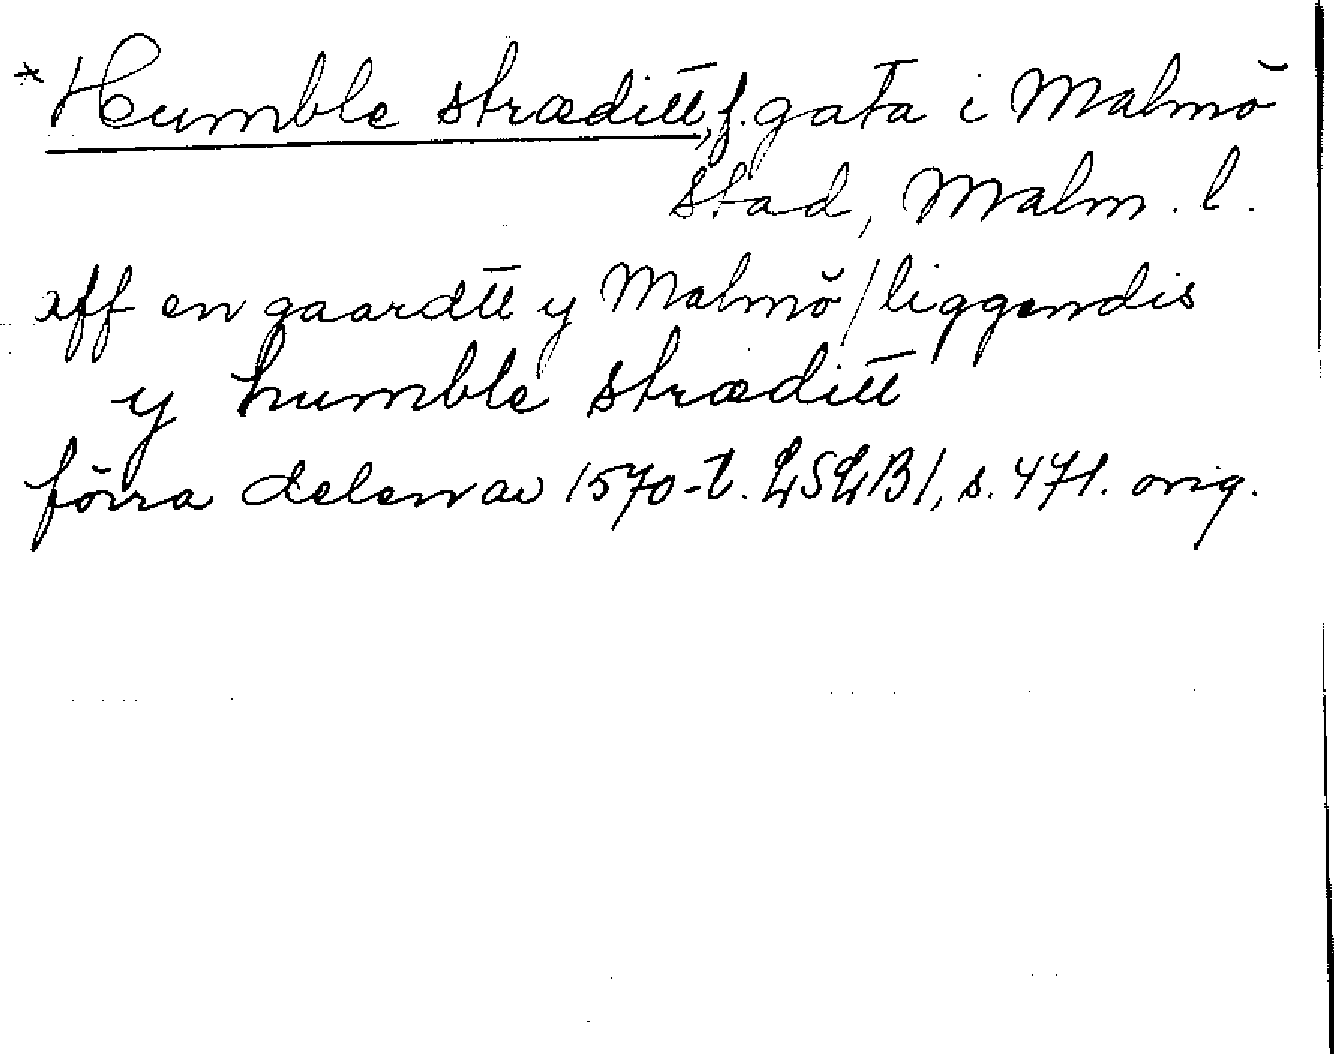 *Humble stræditt, f. gata i Malmö
stad, Malm. l.
aff en gaardtt y Malmö / liggendis
y humble stræditt
förra delen av 1570-t. LSLB1, s. 471. orig.